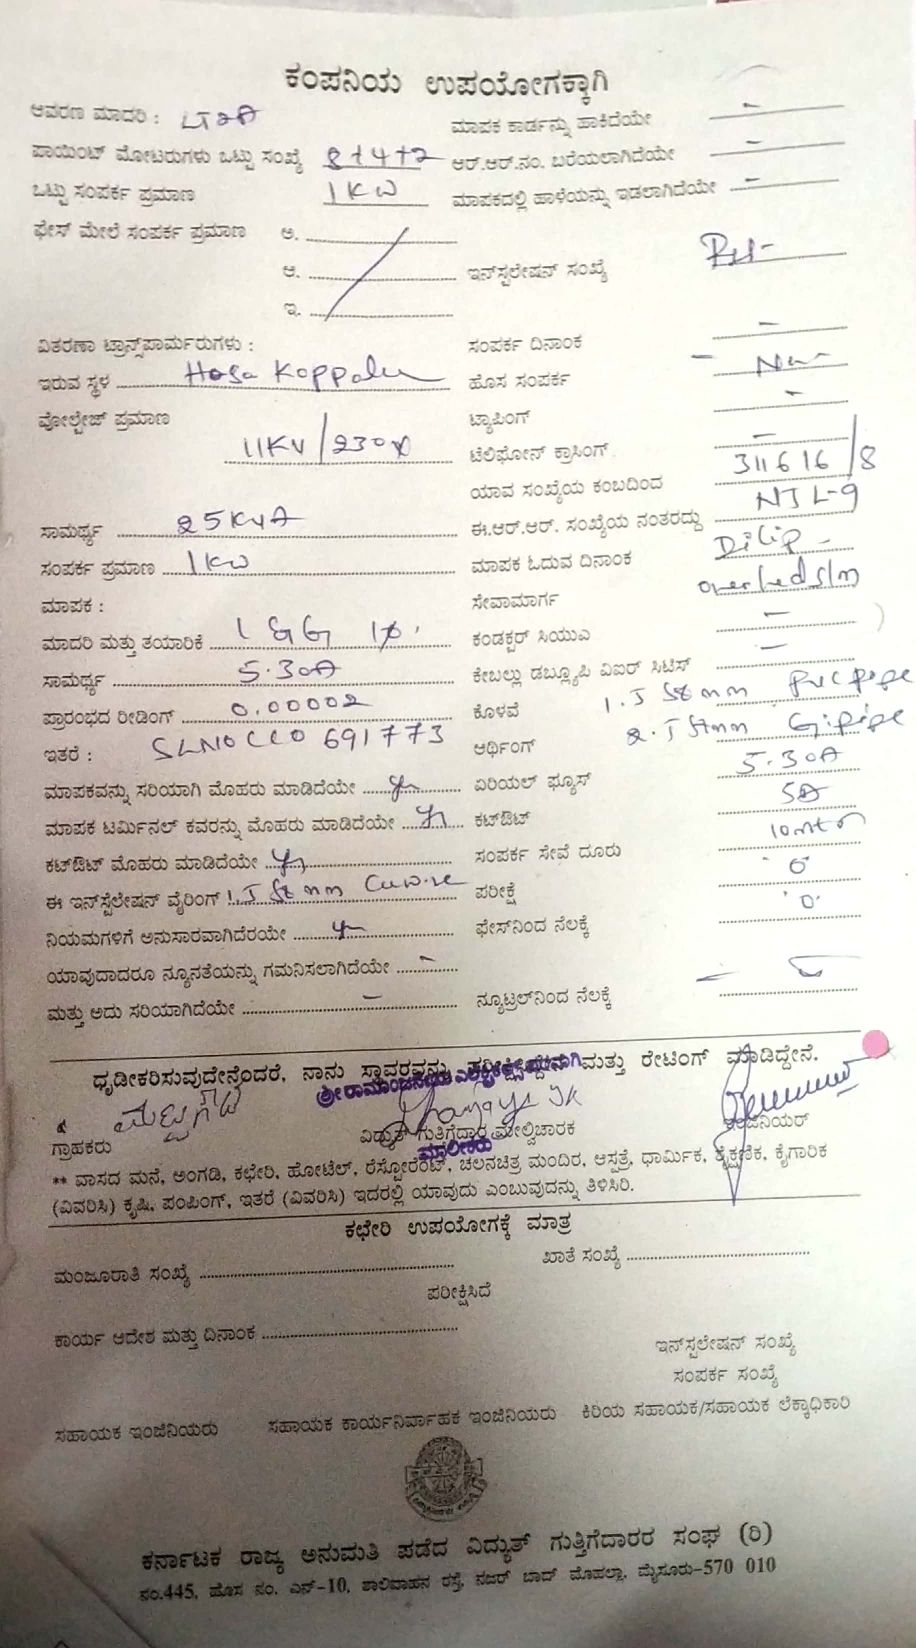 ಕಂಪನಿಯ ಉಪಯೋಗಕ್ಕಾಗಿ
ಆವರಣ ಮಾದರಿ : LT2A ಮಾಪಕ ಕಾರ್ಡನ್ನು ಹಾಕಿದೆಯೇ -
ಪಾಯಿಂಟ್ ಮೋಟರುಗಳು ಒಟ್ಟು ಸಂಖ್ಯೆ 8+4+2 ಆರ್.ಆರ್.ನಂ. ಬರೆಯಲಾಗಿದೆಯೇ -
ಒಟ್ಟು ಸಂಪರ್ಕ ಪ್ರಮಾಣ 1KW ಮಾಪಕದಲ್ಲಿ ಹಾಳೆಯನ್ನು ಇಡಲಾಗಿದೆಯೇ -
ಫೇಸ್ ಮೇಲೆ ಸಂಪರ್ಕ ಪ್ರಮಾಣ ಅ.
ಆ. ಇನ್‌ಸ್ಟಲೇಷನ್ ಸಂಖ್ಯೆ
ಇ.
ವಿತರಣಾ ಟ್ರಾನ್ಸ್‌ಪಾರ್ಮರುಗಳು : ಸಂಪರ್ಕ ದಿನಾಂಕ -
ಇರುವ ಸ್ಥಳ Hosa Koppalu ಹೊಸ ಸಂಪರ್ಕ - New
ವೋಲ್ಟೇಜ್ ಪ್ರಮಾಣ ಟ್ಯಾಪಿಂಗ್ -
11KV/230V ಟೆಲಿಫೋನ್ ಕ್ರಾಸಿಂಗ್ -
ಯಾವ ಸಂಖ್ಯೆಯ ಕಂಬದಿಂದ 311616/8
ಸಾಮರ್ಥ್ಯ 25KVA ಈ.ಆರ್.ಆರ್. ಸಂಖ್ಯೆಯ ನಂತರದ್ದು NJL-9
ಸಂಪರ್ಕ ಪ್ರಮಾಣ 1KW ಮಾಪಕ ಓದುವ ದಿನಾಂಕ Dilip -
ಮಾಪಕ : ಸೇವಾಮಾರ್ಗ overhed s/m
ಮಾದರಿ ಮತ್ತು ತಯಾರಿಕೆ L&G 1φ. ಕಂಡಕ್ಟರ್ ಸಿಯುವಿ -
ಸಾಮರ್ಥ್ಯ 5.30A ಕೇಬಲ್ಲು ಡಬ್ಲ್ಯೂಪಿ ವಿಐಆರ್ ಸಿಟಿಸ್ -
ಪ್ರಾರಂಭದ ರೀಡಿಂಗ್ 0.00002 ಕೊಳವೆ pvc pipe
ಇತರೆ : SLNO CCO 691773 ಆರ್ಥಿಂಗ್ Gi pipe
ಮಾಪಕವನ್ನು ಸರಿಯಾಗಿ ಮೊಹರು ಮಾಡಿದೆಯೇ ಏರಿಯಲ್ ಫ್ಯೂಸ್ 5.30A
ಮಾಪಕ ಟರ್ಮಿನಲ್ ಕವರನ್ನು ಮೊಹರು ಮಾಡಿದೆಯೇ ಕಟ್‌ಔಟ್ 5A
ಕಟ್‌ಔಟ್ ಮೊಹರು ಮಾಡಿದೆಯೇ ಸಂಪರ್ಕ ಸೇವೆ ದೂರು
ಈ ಇನ್‌ಸ್ಟೆಲೇಷನ್ ವೈರಿಂಗ್ Cu wire ಪರೀಕ್ಷೆ '0'
ನಿಯಮಗಳಿಗೆ ಅನುಸಾರವಾಗಿದೆರಯೇ ಫೇಸ್‌ನಿಂದ ನೆಲಕ್ಕೆ '0'
ಯಾವುದಾದರೂ ನ್ಯೂನತೆಯನ್ನು ಗಮನಿಸಲಾಗಿದೆಯೇ -
ಮತ್ತು ಅದು ಸರಿಯಾಗಿದೆಯೇ - ನ್ಯೂಟ್ರಲ್‌ನಿಂದ ನೆಲಕ್ಕೆ
ಧೃಡೀಕರಿಸುವುದೇನೆಂದರೆ, ನಾನು ಸ್ಥಾವರವನ್ನು ಮತ್ತು ರೇಟಿಂಗ್ ಮಾಡಿದ್ದೇನೆ.
ಶ್ರೀ ರಾಮಾಂಜನೇಯ
ಗ್ರಾಹಕರು ವಿದ್ಯುತ್ ಗುತ್ತಿಗೆದಾರ ಮೇಲ್ವಿಚಾರಕ ಇಂಜಿನಿಯರ್
ಮಾಲೀಕರು
** ವಾಸದ ಮನೆ, ಅಂಗಡಿ, ಕಛೇರಿ, ಹೋಟೆಲ್, ರೆಸ್ಟೋರೆಂಟ್, ಚಲನಚಿತ್ರ ಮಂದಿರ, ಆಸ್ಪತ್ರೆ, ಧಾರ್ಮಿಕ, ಶೈಕ್ಷಣಿಕ, ಕೈಗಾರಿಕ
(ವಿವರಿಸಿ) ಕೃಷಿ, ಪಂಪಿಂಗ್, ಇತರೆ (ವಿವರಿಸಿ) ಇದರಲ್ಲಿ ಯಾವುದು ಎಂಬುವುದನ್ನು ತಿಳಿಸಿರಿ.
ಕಛೇರಿ ಉಪಯೋಗಕ್ಕೆ ಮಾತ್ರ
ಮಂಜೂರಾತಿ ಸಂಖ್ಯೆ ಖಾತೆ ಸಂಖ್ಯೆ
ಪರೀಕ್ಷಿಸಿದೆ
ಕಾರ್ಯ ಆದೇಶ ಮತ್ತು ದಿನಾಂಕ
ಇನ್‌ಸ್ಟಲೇಷನ್ ಸಂಖ್ಯೆ
ಸಂಪರ್ಕ ಸಂಖ್ಯೆ
ಸಹಾಯಕ ಇಂಜಿನಿಯರು ಸಹಾಯಕ ಕಾರ್ಯನಿರ್ವಾಹಕ ಇಂಜಿನಿಯರು ಕಿರಿಯ ಸಹಾಯಕ/ಸಹಾಯಕ ಲೆಕ್ಕಾಧಿಕಾರಿ
ಕರ್ನಾಟಕ ರಾಜ್ಯ ಅನುಮತಿ ಪಡೆದ ವಿದ್ಯುತ್ ಗುತ್ತಿಗೆದಾರರ ಸಂಘ (ರಿ)
ನಂ.445, ಹೊಸ ನಂ. ಎನ್-10, ಶಾಲಿವಾಹನ ರಸ್ತೆ, ನಜರ್ ಬಾದ್ ಮೊಹಲ್ಲಾ, ಮೈಸೂರು-570 010